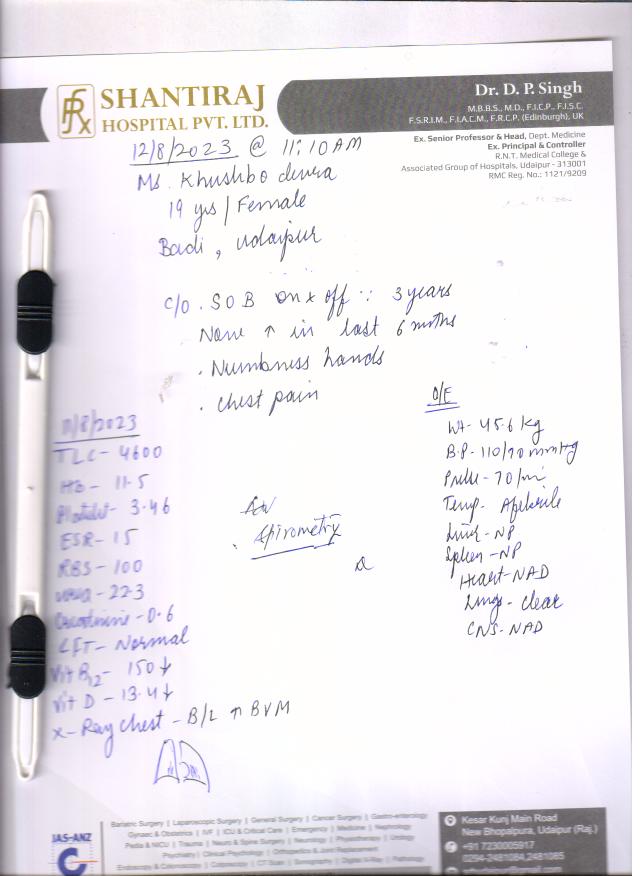 SHANTIRAJ
HOSPITAL PVT. LTD.
Dr. D. P. Singh
M.B.B.S., M.D., F.I.C.P., F.I.S.C.
F.S.R.I.M., F.I.A.C.M., F.R.C.P. (Edinburgh), UK
Ex. Senior Professor & Head, Dept. Medicine
Ex. Principal & Controller
R.N.T. Medical College &
Associated Group of Hospitals, Udaipur - 313001
RMC Reg. No.: 1121/9209
12/8/2023 @ 11:10AM
Ms. Khushbo
19 yrs / Female
Badi, Udaipur
C/O . SOB on & off ∵ 3 years
Now ↑ in last 6 moths
. Numbness hands
. Chest pain
O/E
Wt- 45.6 kg
B.P- 110/70 mmHg
Pulse- 70/mi
Temp. Afebrile
Liver- NP
Spleen- NP
Heart- NAD
Lungs- clear
CNS- NAD
11/8/2023
TLC- 4600
Hb- 11.5
Platelet- 3.46
ESR- 15
RBS- 100
Urea- 22.3
Creatinine- 0.6
LFT- Normal
Vit B12- 150 ↓
Vit D- 13.4 ↓
X-Ray Chest - B/L ↑ BVM
Adv
. Spirometry
IAS-ANZ
Bariatric Surgery | Laparoscopic Surgery | General Surgery | Cancer Surgery | Gastro-enterology
Gynaec & Obstetrics | IVF | ICU & Critical Care | Emergency | Medicine | Nephrology
Pedia & NICU | Trauma | Neuro & Spine Surgery | Neurology | Physiotherapy | Urology
Psychiatry | Clinical Psychology | Orthopedics & Joint Replacement
Endoscopy & Colonoscopy | Colposcopy | CT Scan | Sonography | Digital X-Ray | Pathology
Kesar Kunj Main Road
New Bhopalpura, Udaipur (Raj.)
+91 7230005917
0294-2481084,2481085